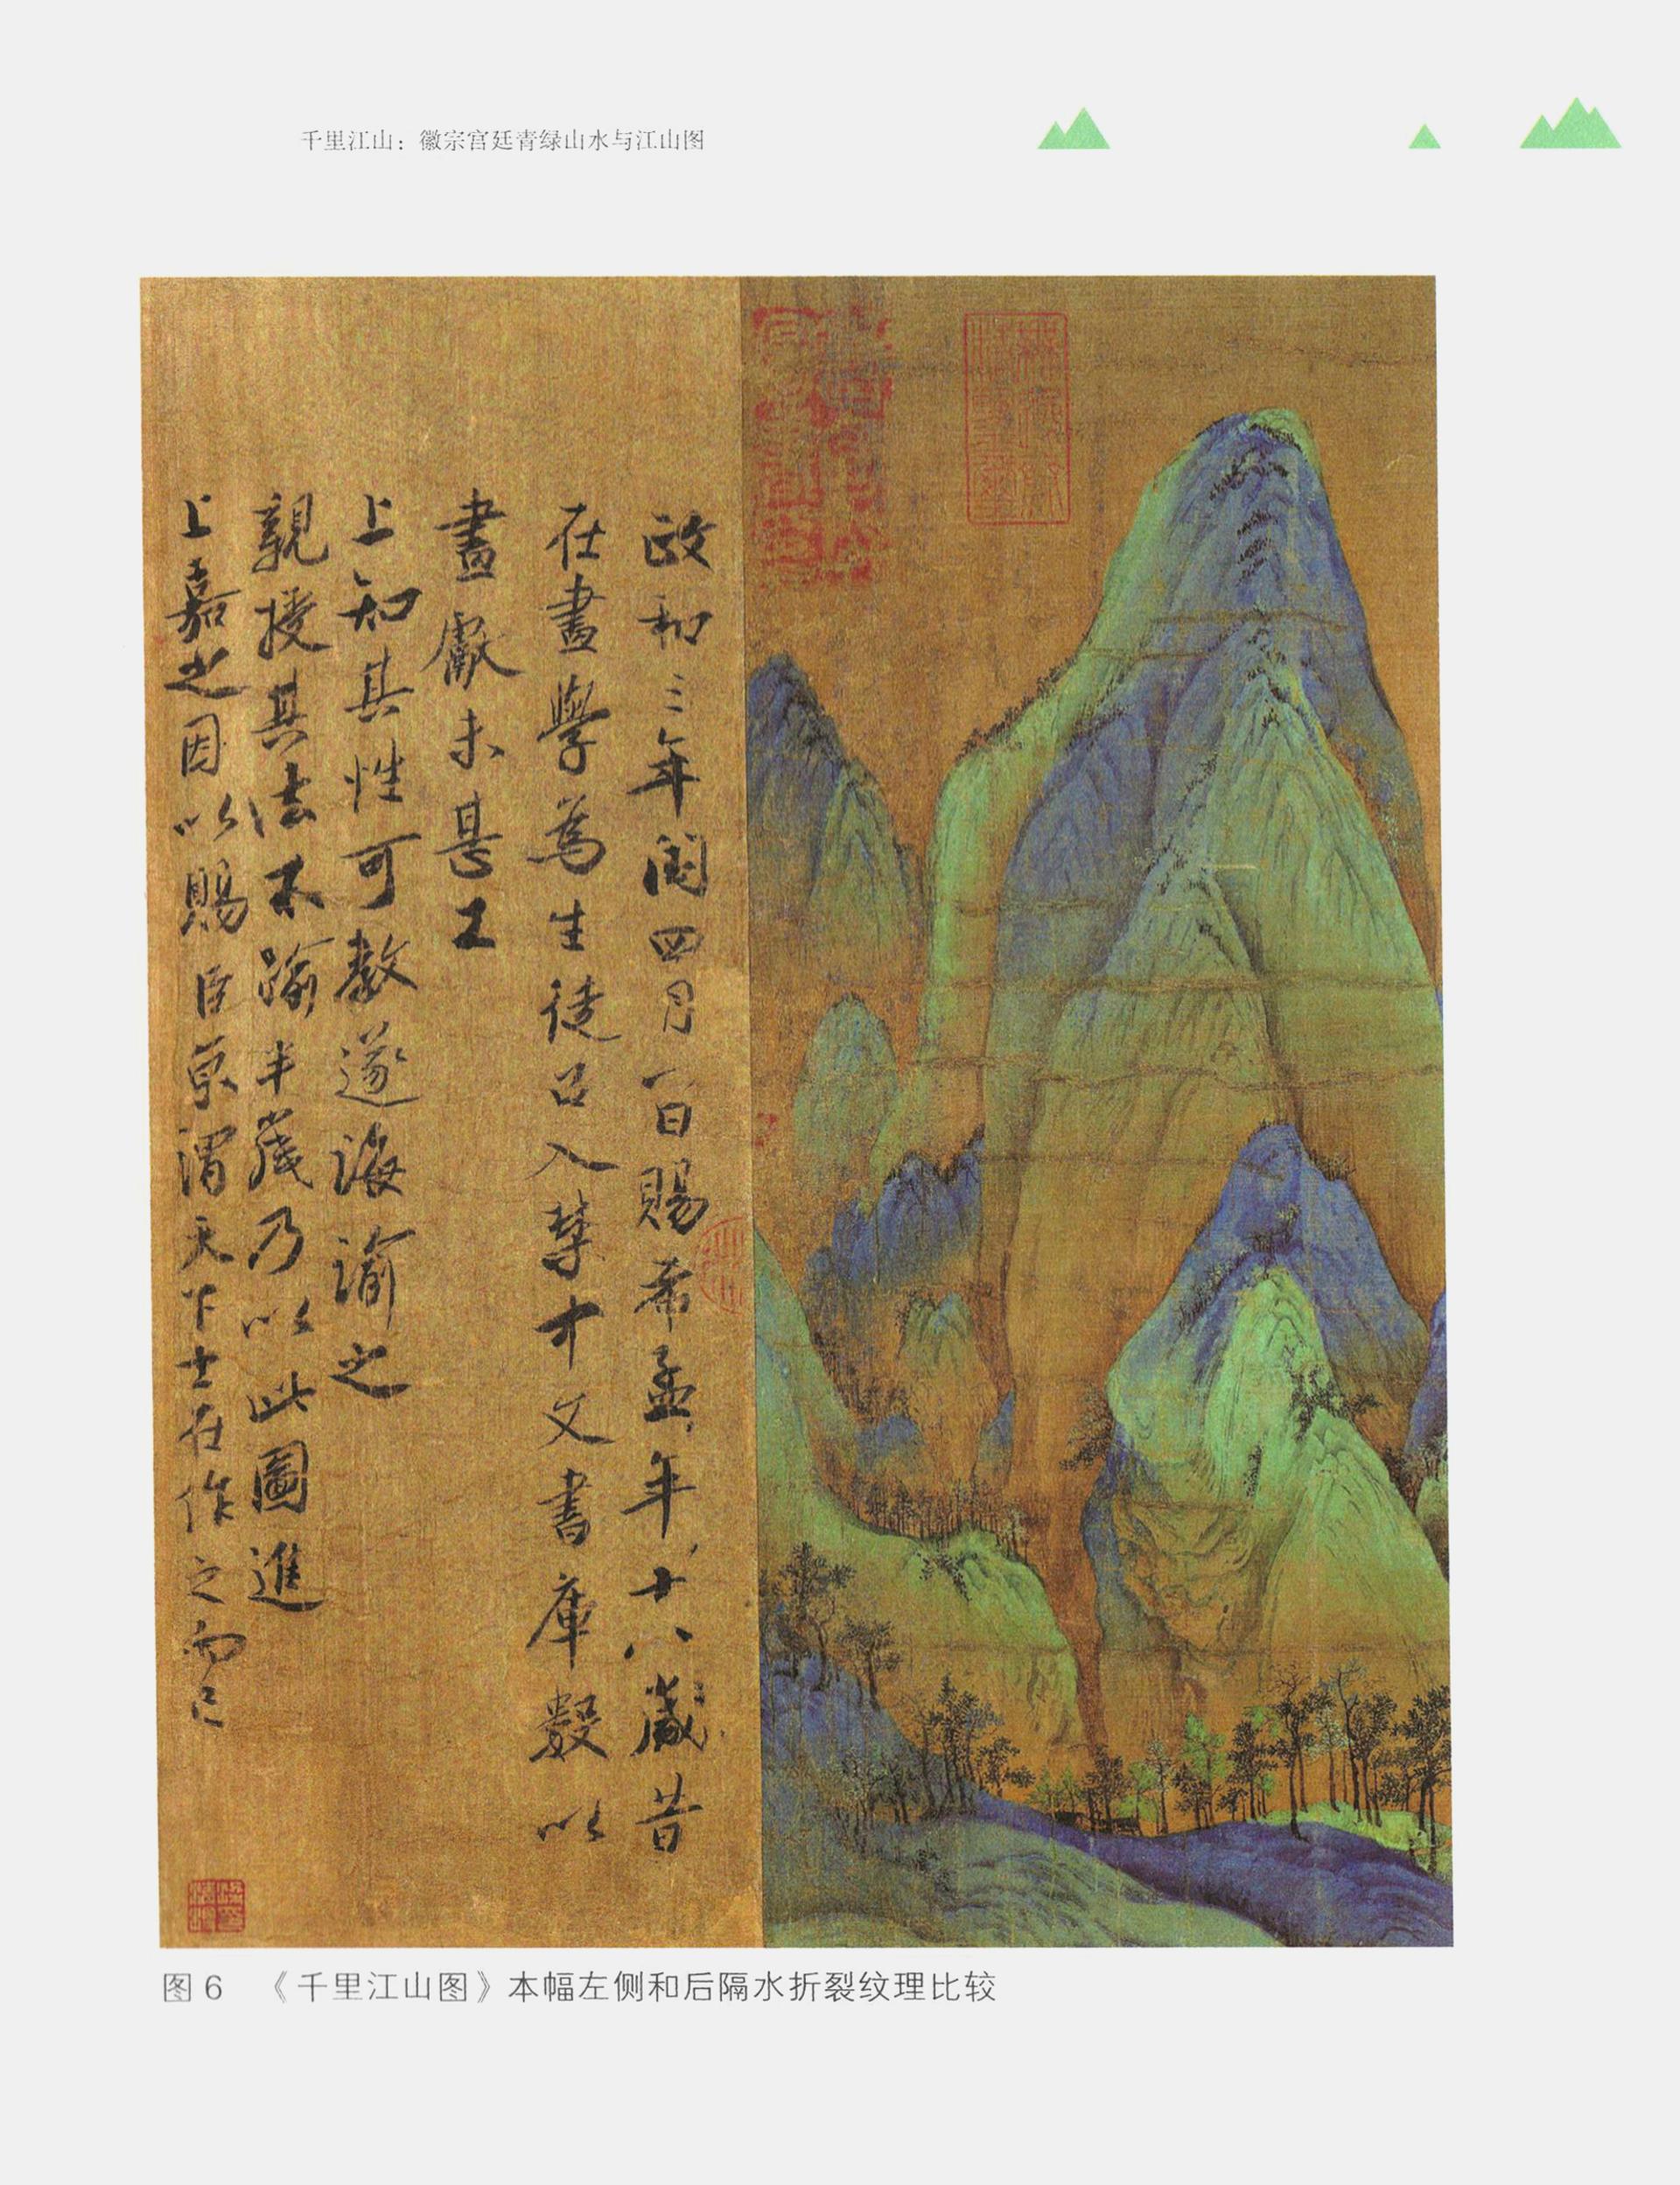 千里江山：徽宗宫廷青绿山水与江山图
政和三年閏四月一日賜希孟年十八歲昔
在畫學為生徒召入禁中文書庫數以
畫獻未甚工
上知其性可教遂誨諭之
親授其法不踰半歲乃以此圖進
上嘉之因以賜臣京謂天下士在作之而已
图6 《千里江山图》本幅左侧和后隔水折裂纹理比较